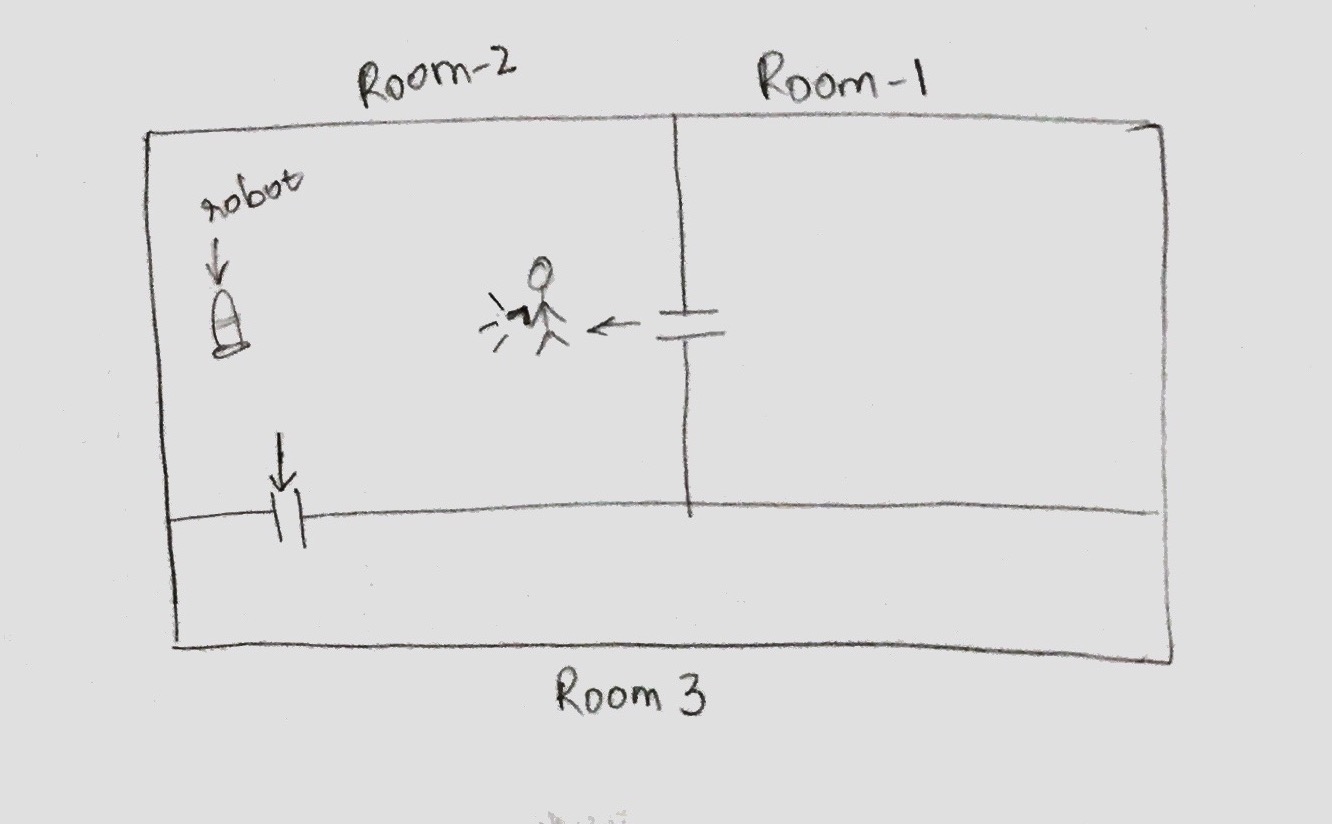 Room-2
Room-1
robot
Room 3